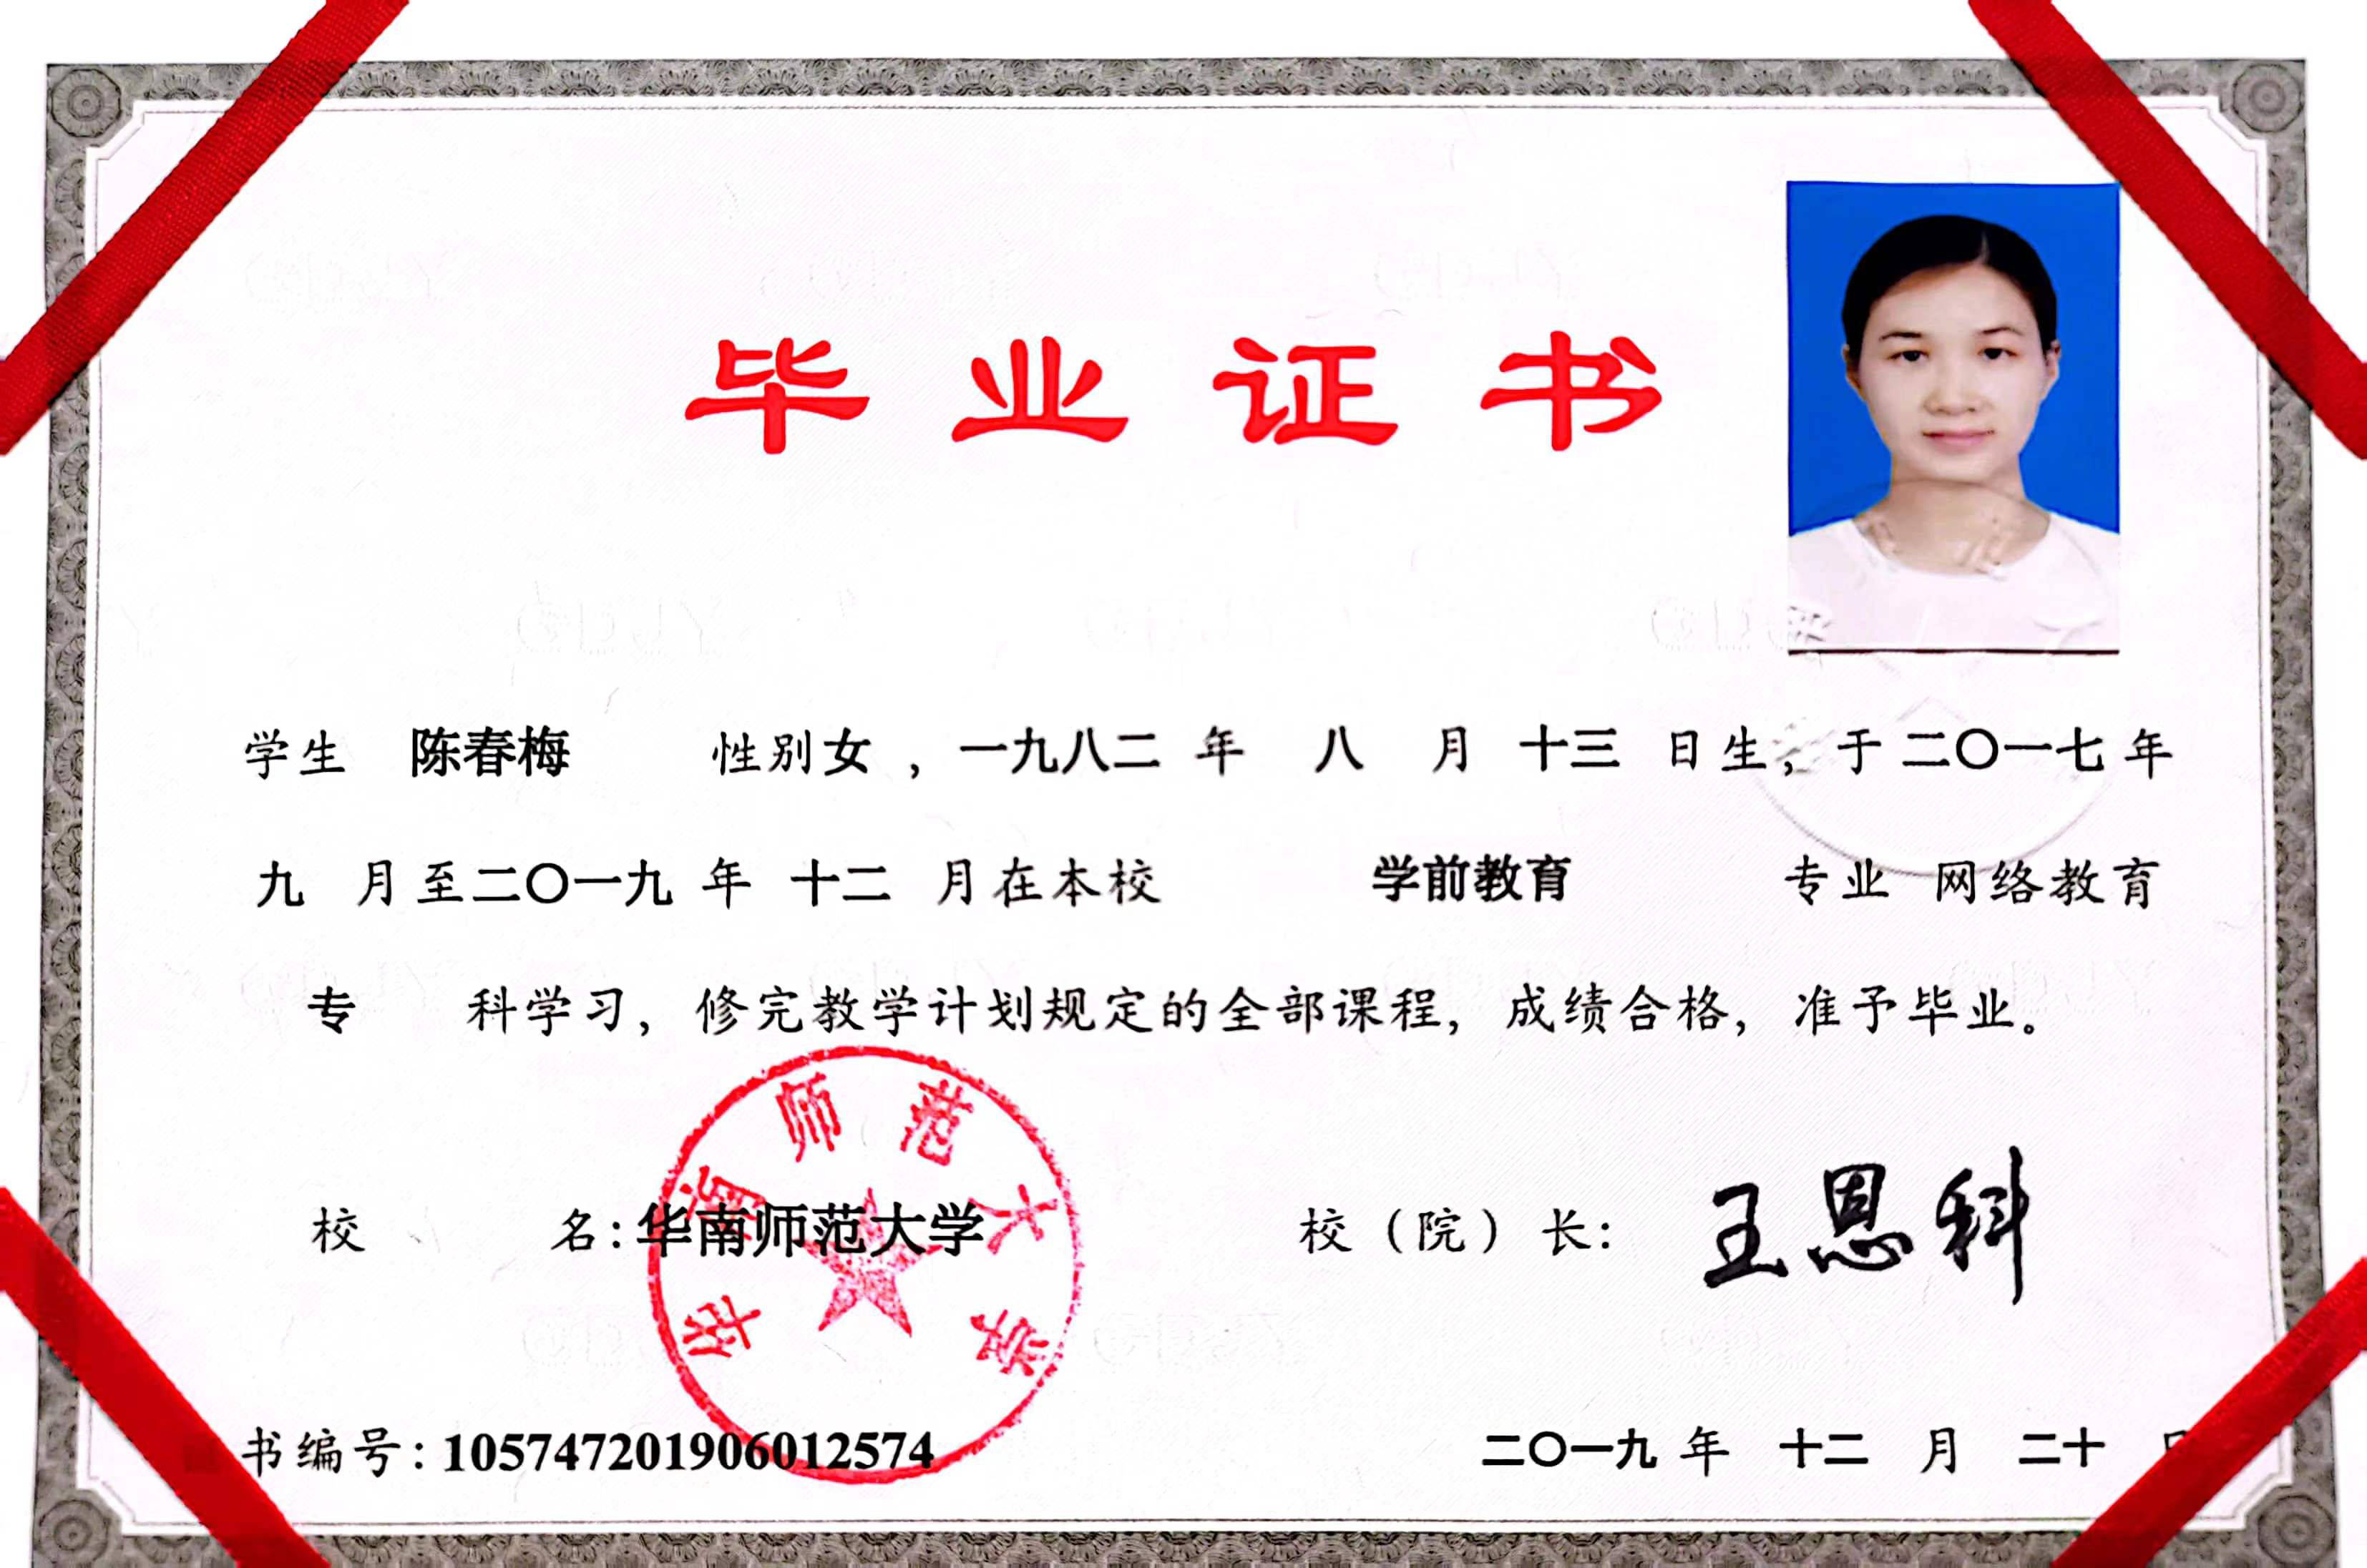 毕业证书
学生 陈春梅 性别女,一九八二 年 八 月 十三 日生,于二〇一七年
九 月至二〇一九 年 十二 月在本校 学前教育 专业 网络教育
专 科学习,修完教学计划规定的全部课程,成绩合格,准予毕业。
华南师范大学
校 名:华南师范大学 校(院)长: 王恩科
书编号:105747201906012574 二〇一九 年 十二 月 二十